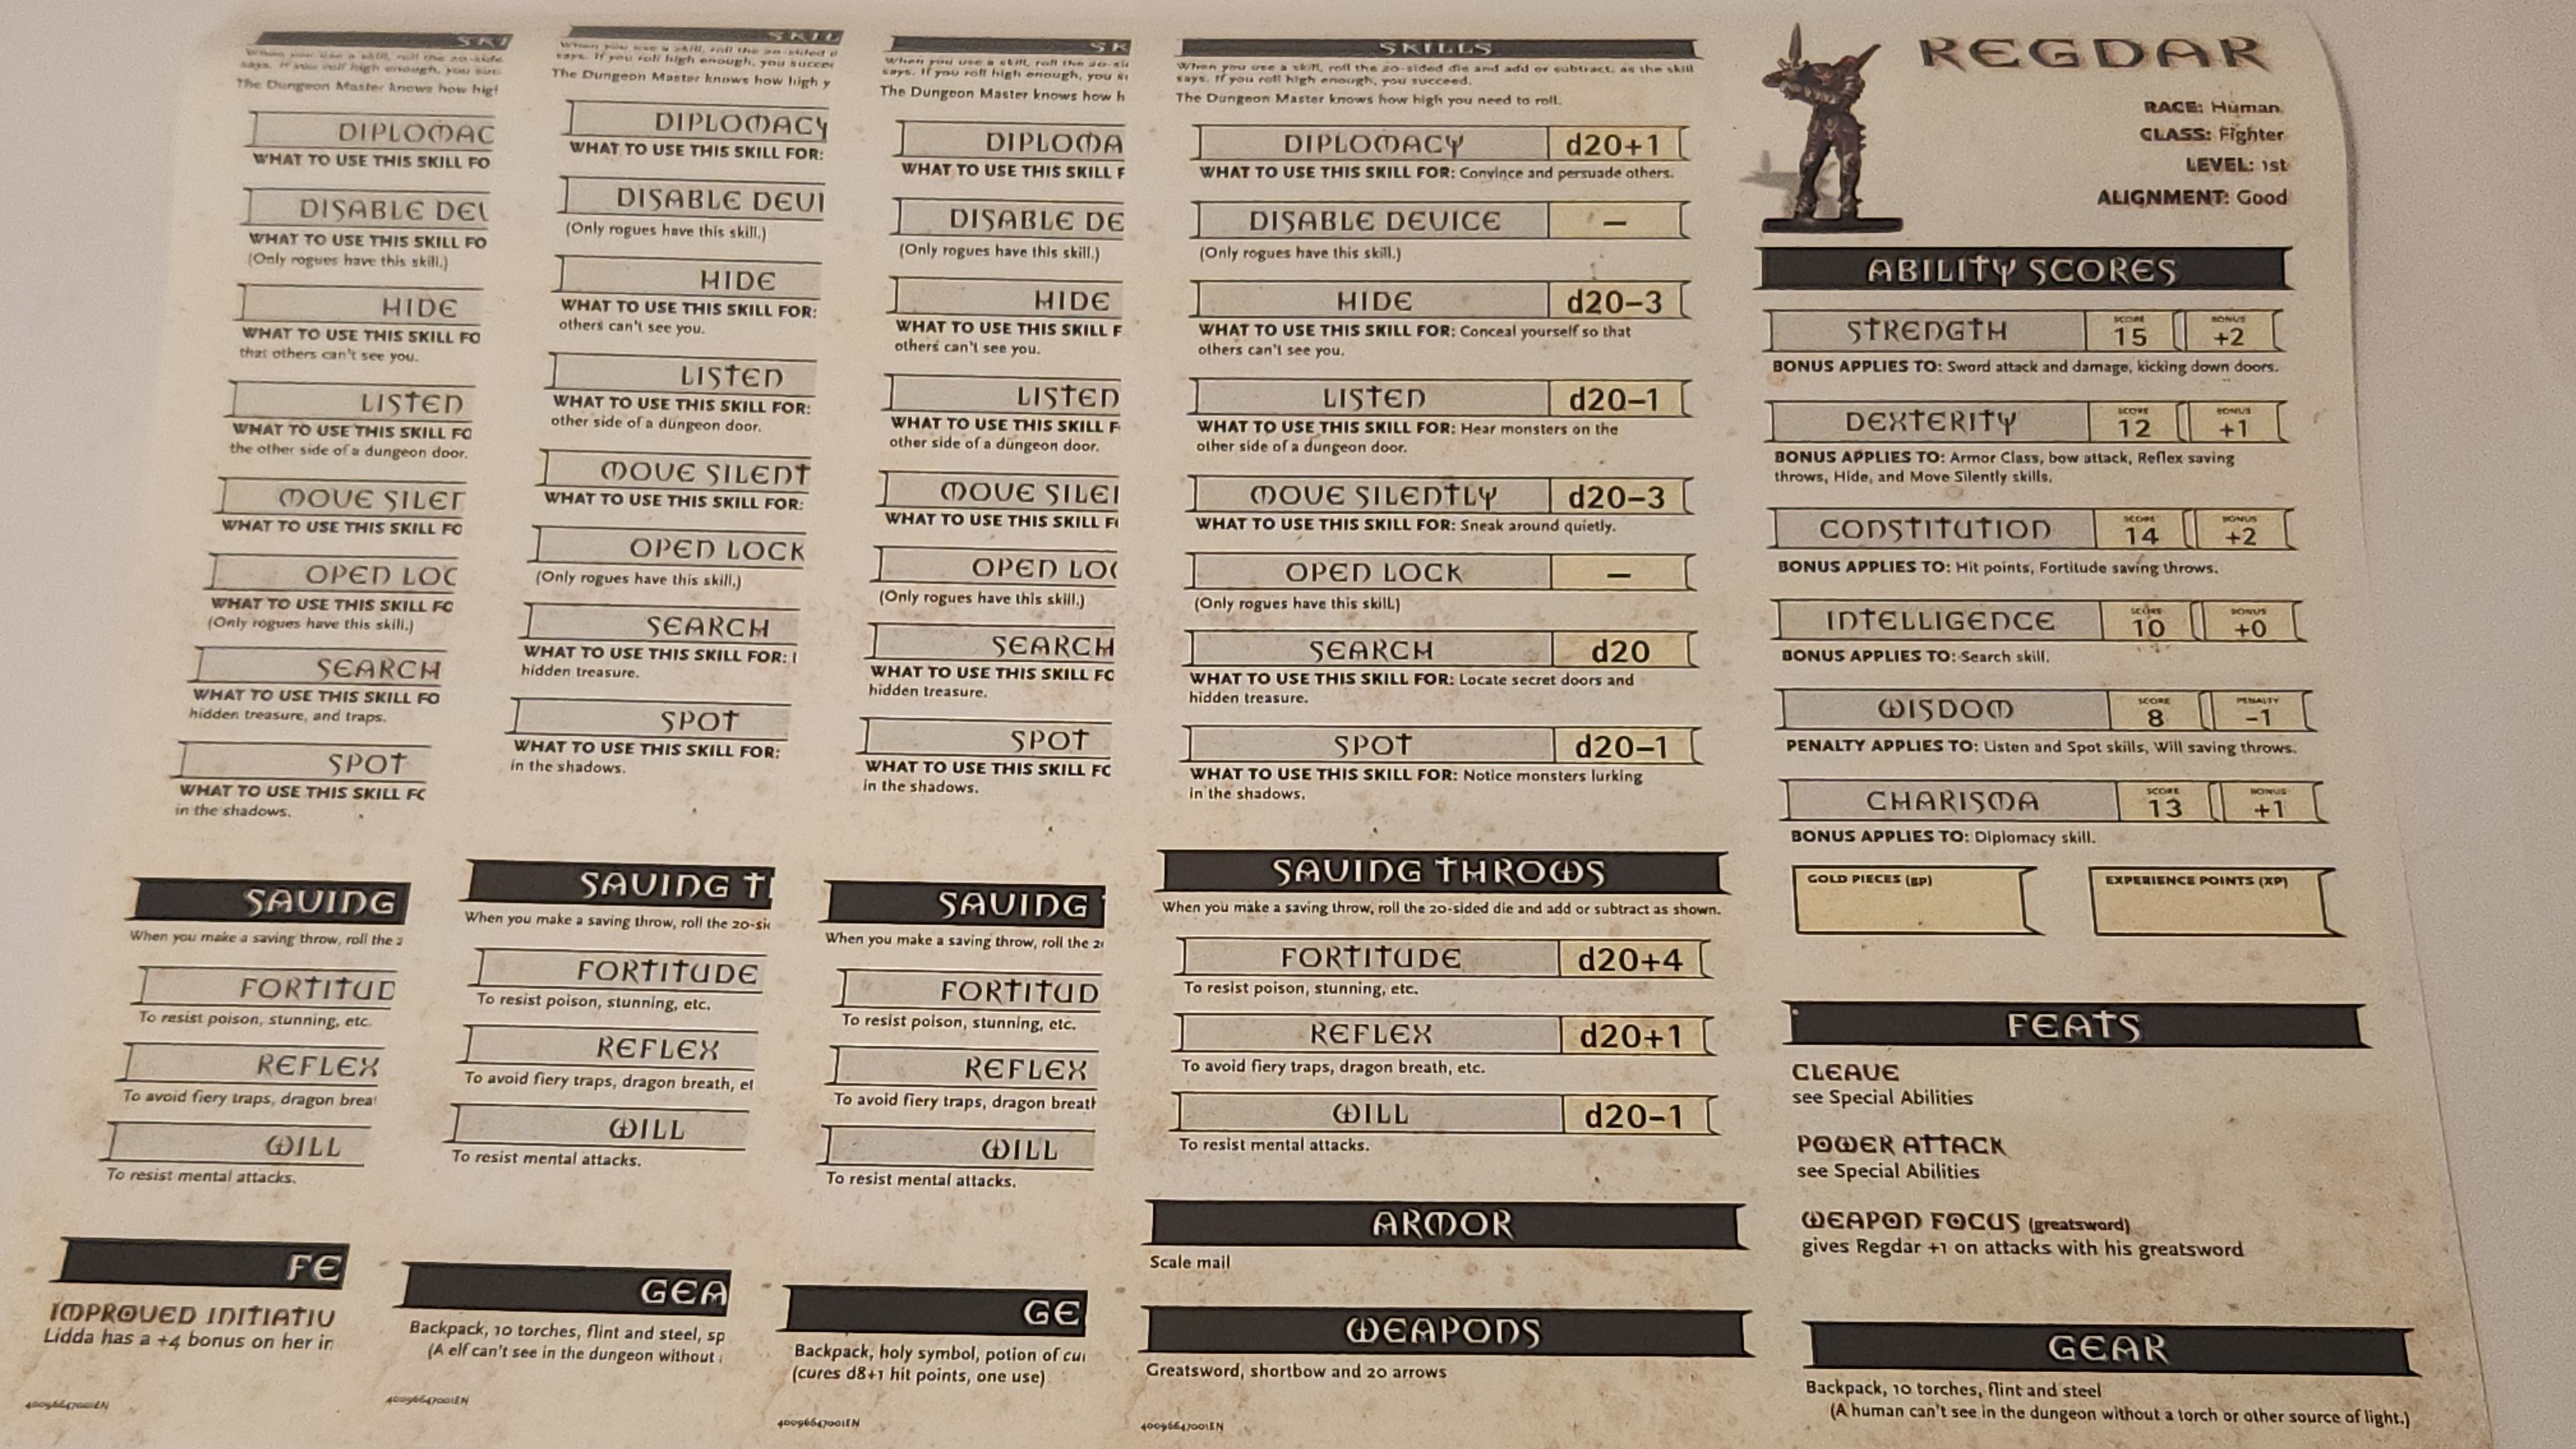 SKI
When you use a skill, roll the 20-side
says. If you roll high enough, you suc
The Dungeon Master knows how higl
DIPLOMAC
WHAT TO USE THIS SKILL FO
DISABLE DE
WHAT TO USE THIS SKILL FO
(Only rogues have this skill.)
HIDE
WHAT TO USE THIS SKILL FO
that others can't see you.
LISTEN
WHAT TO USE THIS SKILL FO
the other side of a dungeon door.
MOVE SILE
WHAT TO USE THIS SKILL FO
OPEN LOC
WHAT TO USE THIS SKILL FO
(Only rogues have this skill.)
SEARCH
WHAT TO USE THIS SKILL FO
hidden treasure, and traps.
SPOT
WHAT TO USE THIS SKILL FO
in the shadows.
SAVING
When you make a saving throw, roll the 2
FORTITUD
To resist poison, stunning, etc.
REFLEX
To avoid fiery traps, dragon brea
WILL
To resist mental attacks.
FE
IMPROVED INITIATIV
Lidda has a +4 bonus on her in
40096647001EN
SKIL
When you use a skill, roll the 20-sided d
says. If you roll high enough, you succe
The Dungeon Master knows how high y
DIPLOMACY
WHAT TO USE THIS SKILL FOR:
DISABLE DEVI
(Only rogues have this skill.)
HIDE
WHAT TO USE THIS SKILL FOR:
others can't see you.
LISTEN
WHAT TO USE THIS SKILL FOR:
other side of a dungeon door.
MOVE SILENT
WHAT TO USE THIS SKILL FOR:
OPEN LOCK
(Only rogues have this skill.)
SEARCH
WHAT TO USE THIS SKILL FOR:
hidden treasure.
SPOT
WHAT TO USE THIS SKILL FOR:
in the shadows.
SAVING T
When you make a saving throw, roll the 20-si
FORTITUDE
To resist poison, stunning, etc.
REFLEX
To avoid fiery traps, dragon breath, et
WILL
To resist mental attacks.
GEA
Backpack, 10 torches, flint and steel, sp
(A elf can't see in the dungeon without
40096647001EN
SK
When you use a skill, roll the 20-si
says. If you roll high enough, you s
The Dungeon Master knows how h
DIPLOMA
WHAT TO USE THIS SKILL F
DISABLE DE
(Only rogues have this skill.)
HIDE
WHAT TO USE THIS SKILL F
others can't see you.
LISTEN
WHAT TO USE THIS SKILL F
other side of a dungeon door.
MOVE SILE
WHAT TO USE THIS SKILL F
OPEN LO
(Only rogues have this skill.)
SEARCH
WHAT TO USE THIS SKILL FO
hidden treasure.
SPOT
WHAT TO USE THIS SKILL FO
in the shadows.
SAVING
When you make a saving throw, roll the 2
FORTITUD
To resist poison, stunning, etc.
REFLEX
To avoid fiery traps, dragon breat
WILL
To resist mental attacks.
GE
Backpack, holy symbol, potion of cu
(cures d8+1 hit points, one use)
40096647001EN
SKILLS
When you use a skill, roll the 20-sided die and add or subtract, as the skill
says. If you roll high enough, you succeed.
The Dungeon Master knows how high you need to roll.
DIPLOMACY d20+1
WHAT TO USE THIS SKILL FOR: Convince and persuade others.
DISABLE DEVICE —
(Only rogues have this skill.)
HIDE d20–3
WHAT TO USE THIS SKILL FOR: Conceal yourself so that
others can't see you.
LISTEN d20–1
WHAT TO USE THIS SKILL FOR: Hear monsters on the
other side of a dungeon door.
MOVE SILENTLY d20–3
WHAT TO USE THIS SKILL FOR: Sneak around quietly.
OPEN LOCK —
(Only rogues have this skill.)
SEARCH d20
WHAT TO USE THIS SKILL FOR: Locate secret doors and
hidden treasure.
SPOT d20–1
WHAT TO USE THIS SKILL FOR: Notice monsters lurking
in the shadows.
SAVING THROWS
When you make a saving throw, roll the 20-sided die and add or subtract as shown.
FORTITUDE d20+4
To resist poison, stunning, etc.
REFLEX d20+1
To avoid fiery traps, dragon breath, etc.
WILL d20–1
To resist mental attacks.
ARMOR
Scale mail
WEAPONS
Greatsword, shortbow and 20 arrows
40096647001EN
REGDAR
RACE: Human
CLASS: Fighter
LEVEL: 1st
ALIGNMENT: Good
ABILITY SCORES
STRENGTH SCORE 15 BONUS +2
BONUS APPLIES TO: Sword attack and damage, kicking down doors.
DEXTERITY SCORE 12 BONUS +1
BONUS APPLIES TO: Armor Class, bow attack, Reflex saving
throws, Hide, and Move Silently skills.
CONSTITUTION SCORE 14 BONUS +2
BONUS APPLIES TO: Hit points, Fortitude saving throws.
INTELLIGENCE SCORE 10 BONUS +0
BONUS APPLIES TO: Search skill.
WISDOM SCORE 8 PENALTY –1
PENALTY APPLIES TO: Listen and Spot skills, Will saving throws.
CHARISMA SCORE 13 BONUS +1
BONUS APPLIES TO: Diplomacy skill.
GOLD PIECES (GP) EXPERIENCE POINTS (XP)
FEATS
CLEAVE
see Special Abilities
POWER ATTACK
see Special Abilities
WEAPON FOCUS (greatsword)
gives Regdar +1 on attacks with his greatsword
GEAR
Backpack, 10 torches, flint and steel
(A human can't see in the dungeon without a torch or other source of light.)